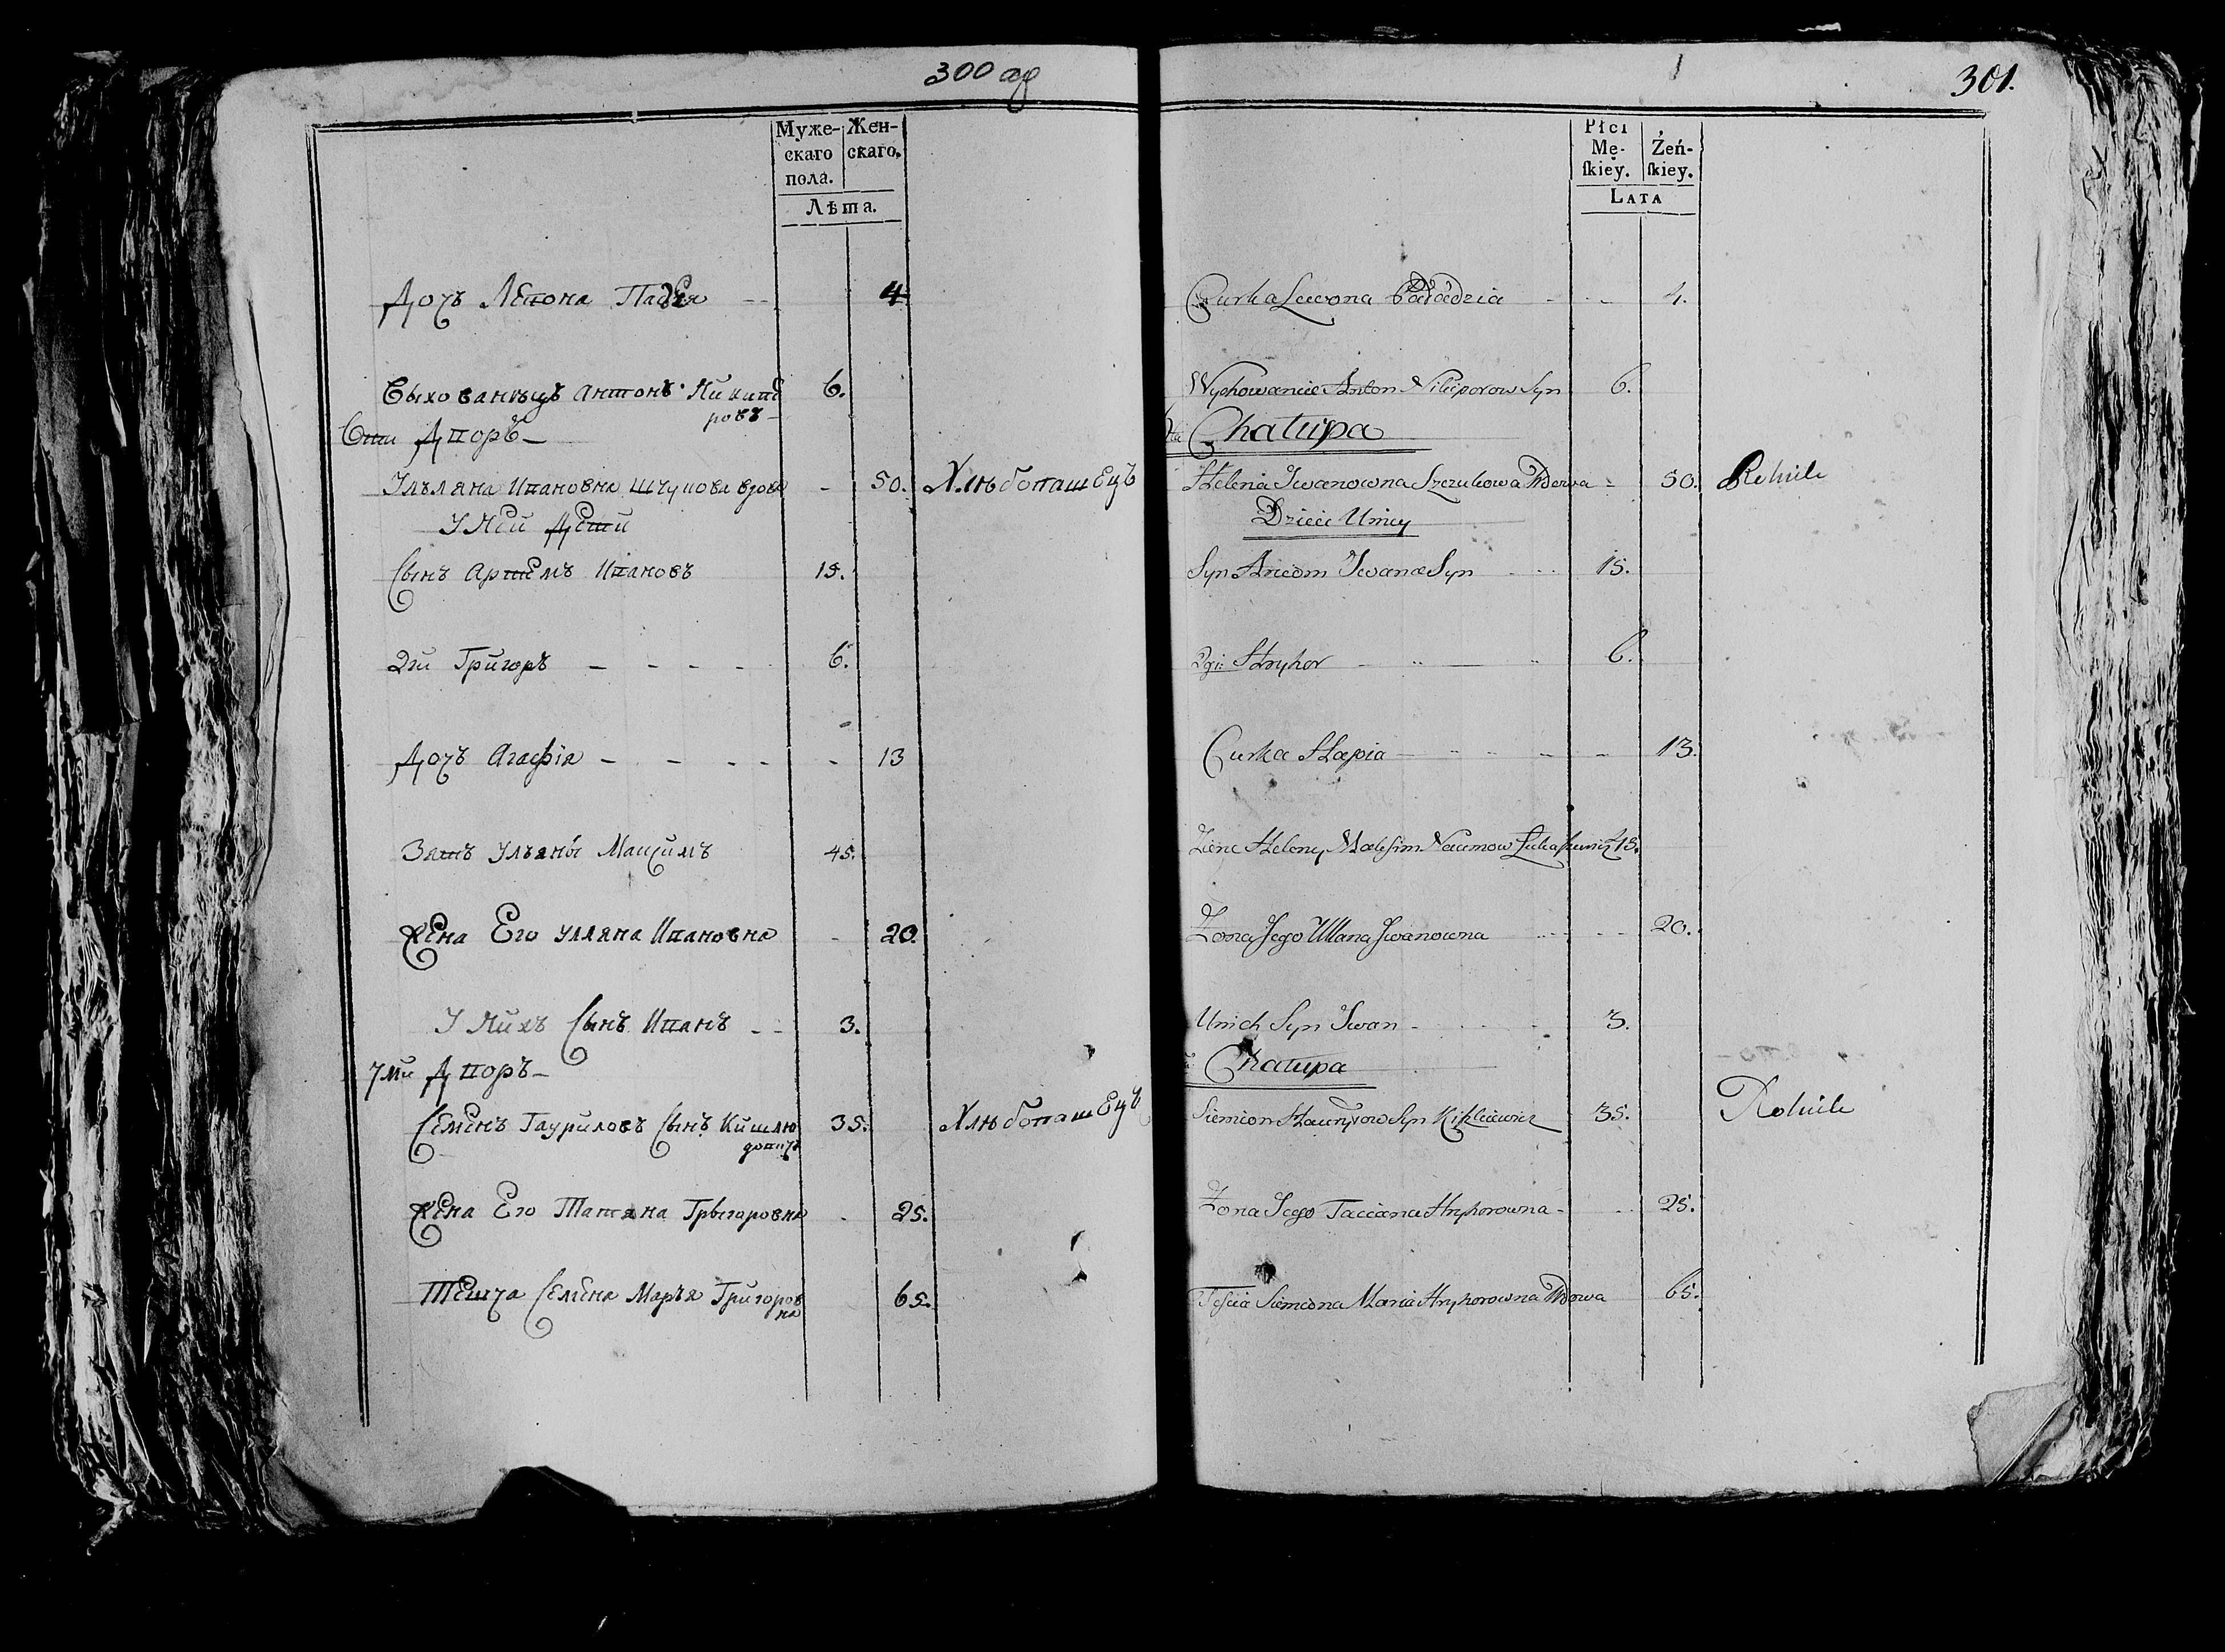 300 об
Муже- Жен-
скаго скаго,
пола.
Лѣта.
Дочъ Лѣвона 4
Выхованецъ Антонъ Никипѣ 6.
ровъ
6ти Дворъ
Ульляна Ивановна вдова 50. Хлѣбопашецъ
У Ней Дети
Сынъ Артемъ Ивановъ 15.
2гй Григоръ 6.
Дочъ Агафія 13
Зять Ульяны Максимъ 45.
Жена Его Улляна Ивановна 20.
У Нихъ Сынъ Иванъ 3.
7мй Дворъ
Семенъ Гауриловъ Сынъ 35. Хлѣбопашецъ
Жена Его Татяна Грыгоровна 25.
Тешча Семена Маръя Григоров 65.
на
301.
Płci
Mę- Żeń-
ſkiey. ſkiey.
LATA
Curka Lewona 4.
Wychowaniec Anton Nikiporow Syn 6.
Chałupa
Helena Iwanowna Szczukowa Wdowa 50. Rolnik
Dzieci Uniey
Syn Arciom Iwana Syn 15.
2gi: Hryhor 6.
Curka Hapia 13.
Zienc Heleny Maksim Naumow 45.
Zona Jego Ullana Iwanowna 20.
Unich Syn Iwan 3.
Chałupa
Siemion Hauryłow Syn 35. Rolnik
Zona Jego Taciana Hryhorowna 25.
Teścia Siemiona Maria Hryhorowna Wdowa 65.